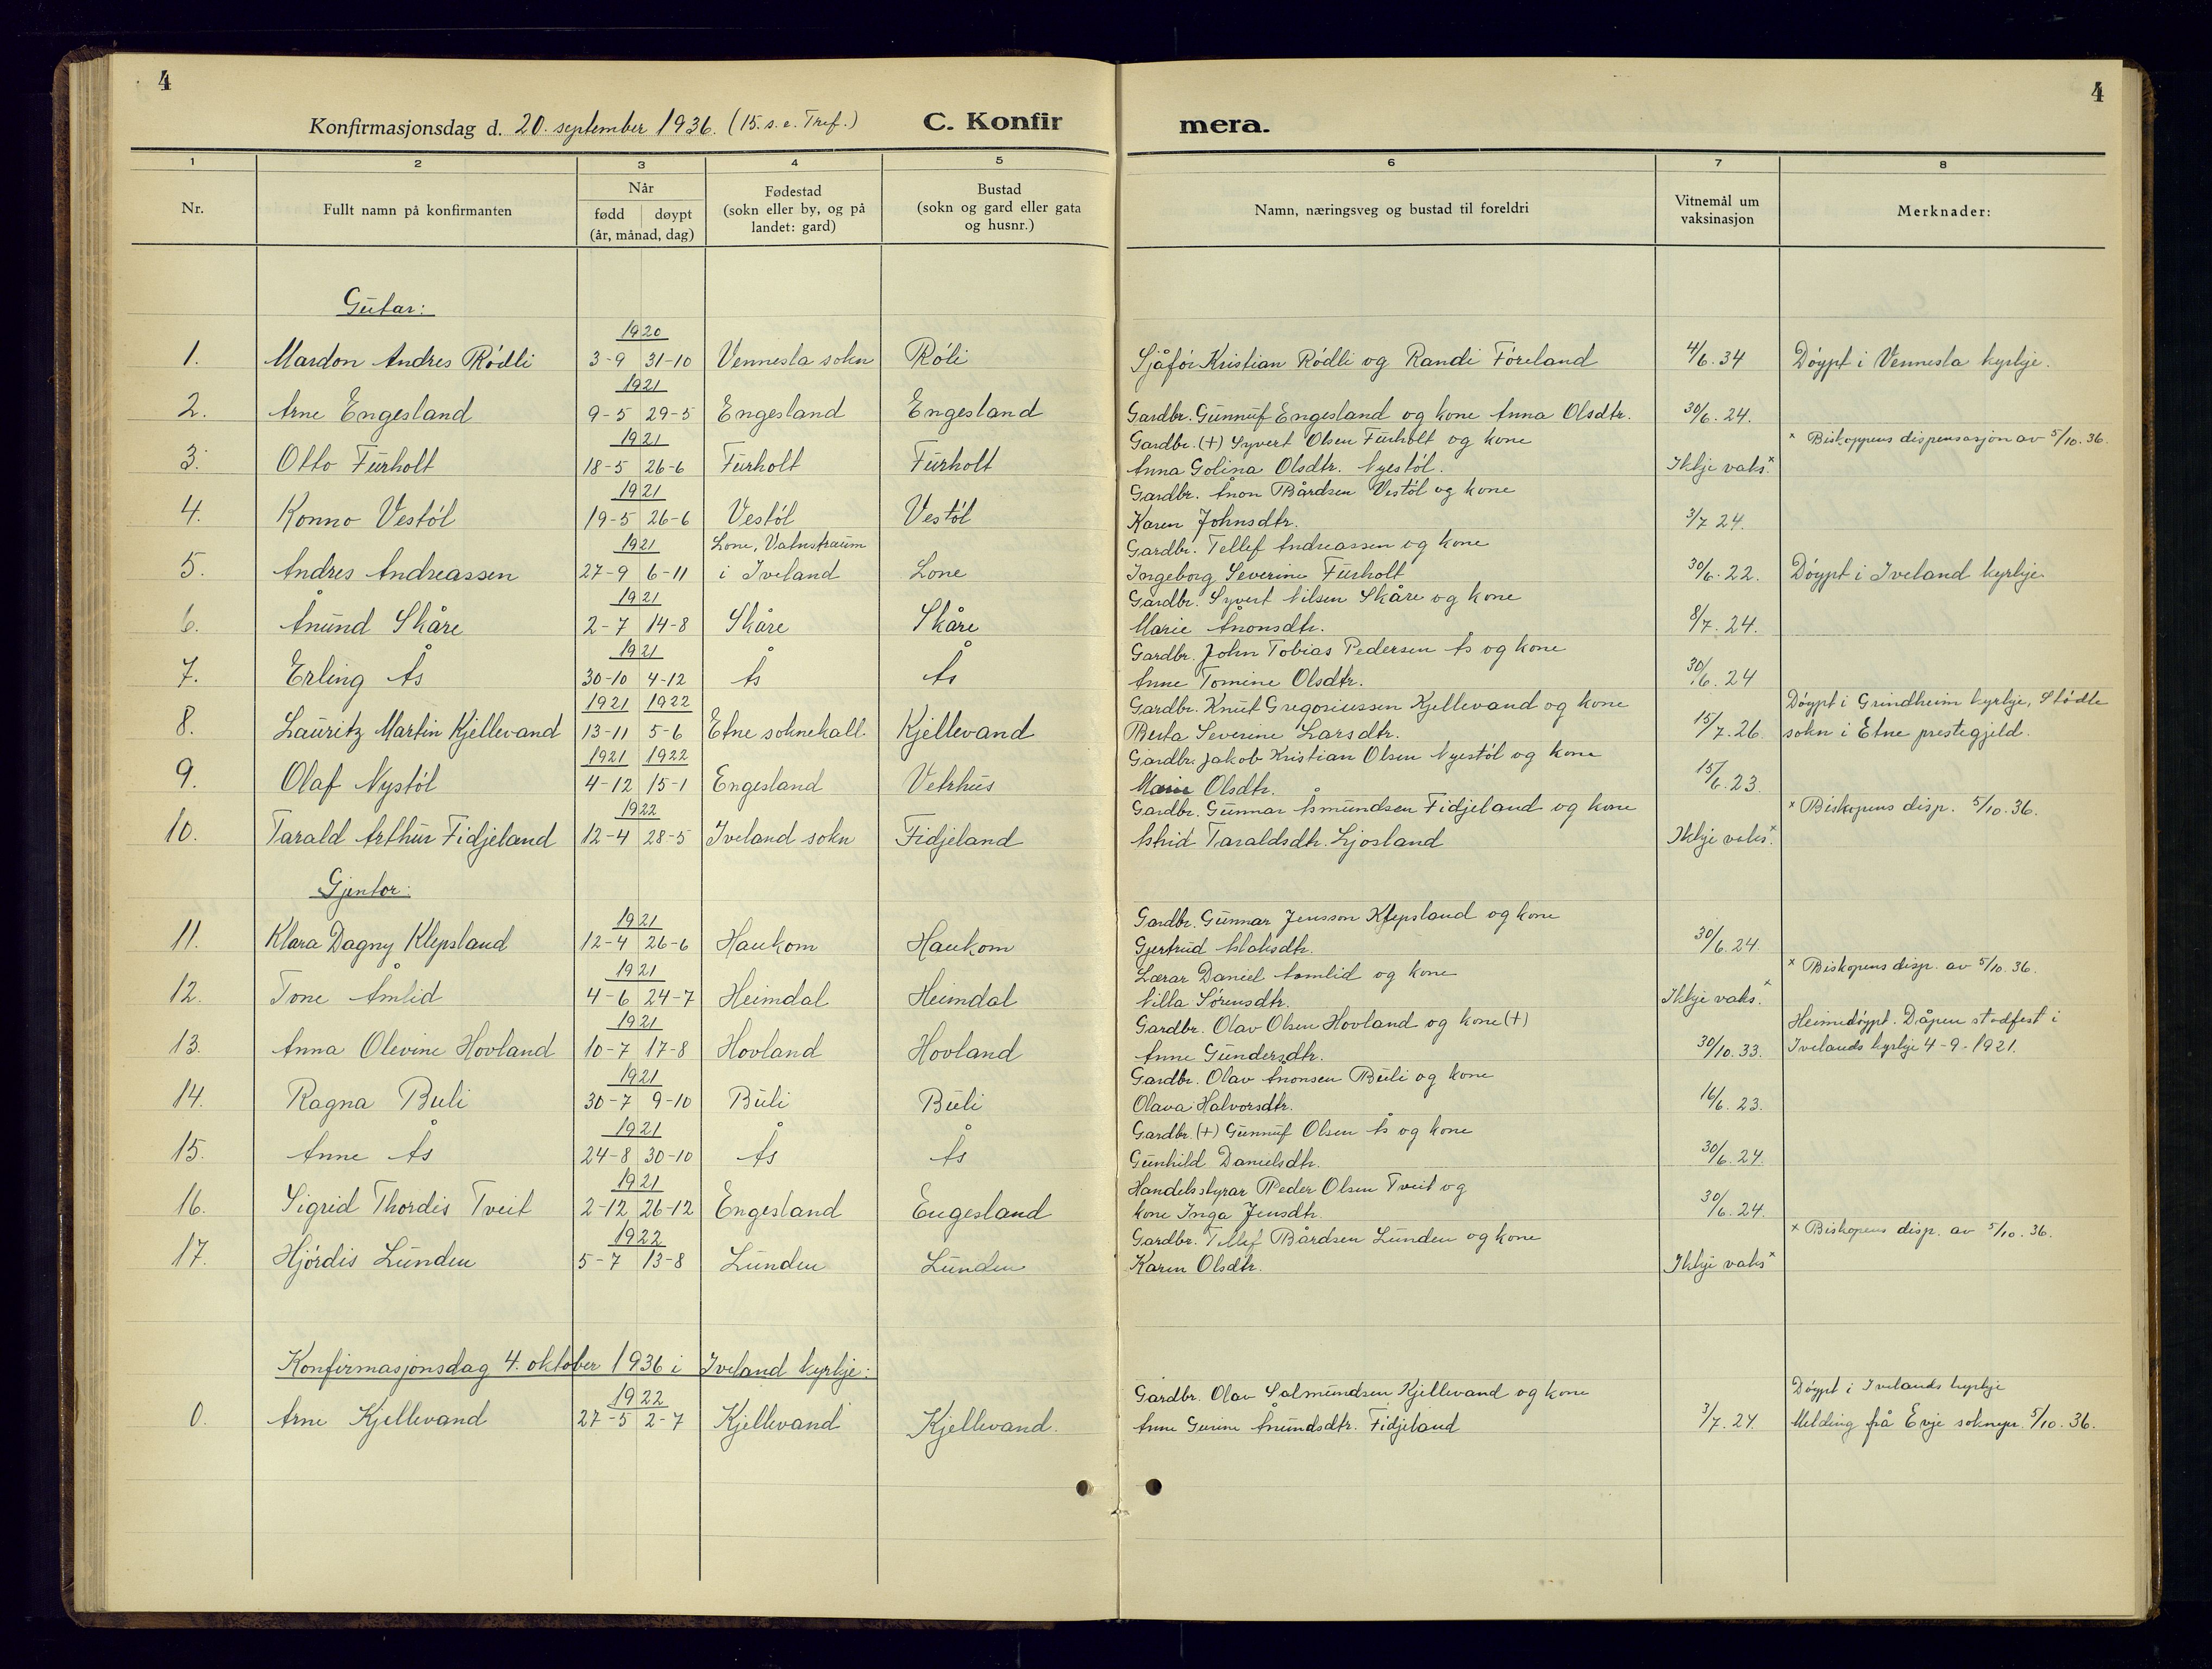 4
4
Konfirmasjonsdag d. 20. september 1936. (15. s. e. Tref.)
C. Konfir
mera.
1 2 3 4 5 6 7 8
Nr.
Fullt namn på konfirmanten
Når
fødd døypt
(år, månad, dag)
Fødestad
(sokn eller by, og på
landet: gard)
Bustad
(sokn og gard eller gata
og husnr.)
Namn, næringsveg og bustad til foreldri
Vitnemål um
vaksinasjon
Merknader:
Gutar:
1920
1. Mardon Andres Rödli 3-9 31-10 Vennesla sokn Röli Sjåför Kristian Rödli og Randi Föreland 4/6. 34 Döypt i Vennesla kyrkje.
1921
2. Arne Engesland 9-5 29-5 Engesland Engesland Gardbr. Gunnuf Engesland og kone Anna Olsdtr. 30/6. 24.
1921 Gardbr. (+) Syvert Olsen Furholt og kone x Biskoppens dispensasjon av 5/10. 36.
3. Otto Furholt 18-5 26-6 Furholt Furholt Anna Golina Olsdtr. Nyestöl. Ikkje vaks.x
1921 Gardbr. Ånon Bårdsen Vestöl og kone
4. Konno Vestöl 19-5 26-6 Vestöl Vestöl Karen Johnsdtr. 3/7 24.
1921 Lone, Vatnstraum Gardbr. Tellef Andreassen og kone
5. Andres Andreassen 27-9 6-11 i Iveland Lone Ingeborg Severine Furholt 30/6. 22. Döypt i Iveland kyrkje.
1921 Gardbr. Syvert Nilsen Skåre og kone
6. Ånund Skåre 2-7 14-8 Skåre Skåre Marie Ånonsdtr. 8/7. 24.
1921 Gardbr. John Tobias Pedersen Ås og kone
7. Erling Ås 30-10 4-12 Ås Ås Anne Tomine Olsdtr. 30/6. 24
1921 1922 Gardbr. Knut Gregoriussen Kjellevand og kone Döypt i Grindheim kyrkje, Stödle
8. Lauritz Martin Kjellevand 13-11 5-6 Etne soknekall. Kjellevand Berta Severine Larsdtr. 15/7. 26. sokn i Etne prestegjeld.
1921 1922 Gardbr. Jakob Kristian Olsen Nyestöl og kone
9. Olaf Nystöl 4-12 15-1 Engesland Vetrhus Marie Olsdtr. 15/6. 23.
1922 Gardbr. Gunnar Åsmundsen Fidjeland og kone x Biskopens disp. 5/10. 36.
10. Tarald Arthur Fidjeland 12-4 28-5 Iveland sokn Fidjeland Astrid Taraldsdtr. Ljosland Ikkje vaks.x
Gjentor:
1921 Gardbr. Gunnar Jensson Klepsland og kone
11. Klara Dagny Klepsland 12-4 26-6 Haukom Haukom Gjertrud Aslaksdtr. 30/6. 24.
1921 Lærar Daniel Åmlid og kone x Biskopens disp. av 5/10. 36.
12. Tone Åmlid 4-6 24-7 Heimdal Heimdal Nilla Sörensdtr. Ikkje vaks.x
1921 Gardbr. Olav Olsen Hovland og kone (+) Heimedöypt. Dåpen stadfest i
13. Anna Olevine Hovland 10-7 17-8 Hovland Hovland Anne Gundersdtr. 30/10. 33. Ivelands kyrkje 4-9-1921.
1921 Gardbr. Olav Ånonsen Buli og kone
14. Ragna Buli 30-7 9-10 Buli Buli Olava Halvorsdtr. 16/6. 23.
1921 Gardbr. (+) Gunnuf Olsen Ås og kone
15. Anne Ås 24-8 30-10 Ås Ås Gunhild Danielsdtr. 30/6. 24.
1921 Handelsstyrar Peder Olsen Tveit og
16. Sigrid Thordis Tveit 2-12 26-12 Engesland Engesland kone Inga Jensdtr. 30/6. 24.
1922 Gardbr. Tellef Bårdsen Lunden og kone x Biskopens disp. av 5/10. 36.
17. Hjördis Lunden 5-7 13-8 Lunden Lunden Karen Olsdtr. Ikkje vaks x
Konfirmasjonsdag 4. oktober 1936 i Iveland kyrkje:
1922 Gardbr. Olav Salmundsen Kjellevand og kone Döypt i Ivelands kyrkje
0. Arne Kjellevand 27-5 2-7 Kjellevand Kjellevand. Anne Gurine Ånundsdtr. Fidjeland 3/7. 24. Melding frå Evje soknepr. 5/10. 36.